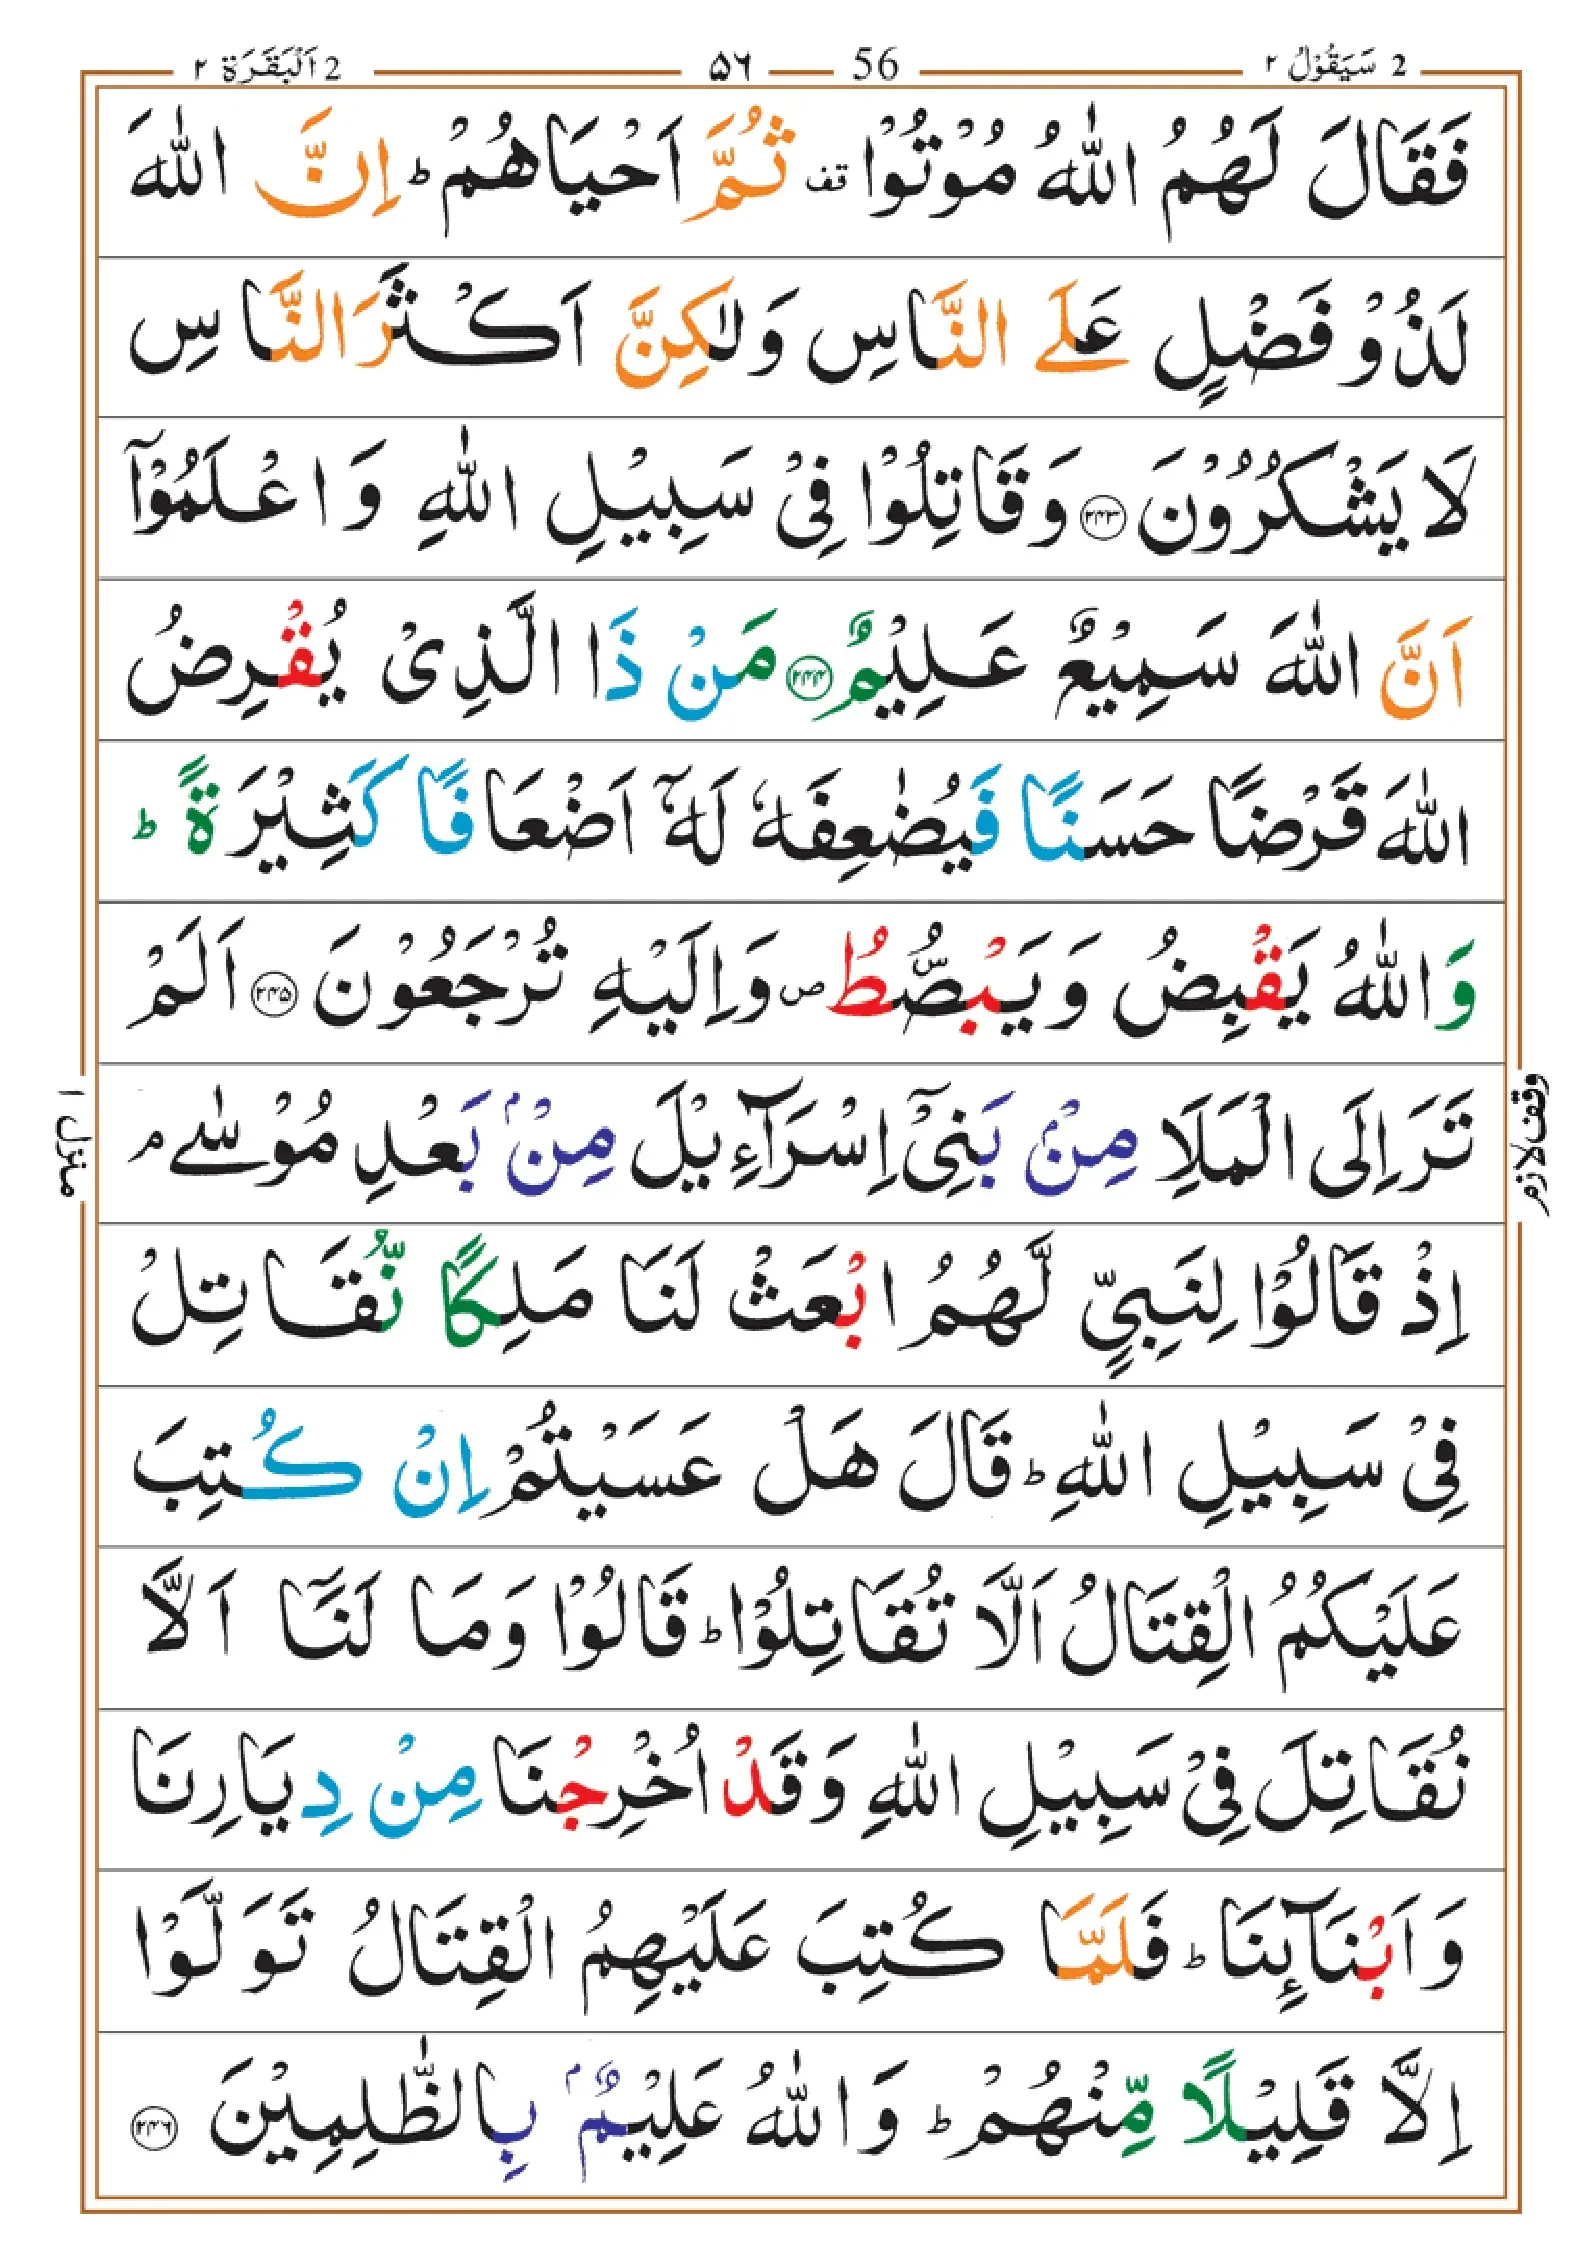 2 سَيَقُوْلُ ٢ 56 ۵۶ 2 اَلْبَقَرَة ٢
فَقَالَ لَهُمُ اللّٰهُ مُوْتُوْا قف ثُمَّ اَحْيَاهُمْ ؕ اِنَّ اللّٰهَ
لَذُوْ فَضْلٍ عَلَى النَّاسِ وَلٰكِنَّ اَكْثَرَ النَّاسِ
لَا يَشْكُرُوْنَ ۲۴۳ وَقَاتِلُوْا فِىْ سَبِيْلِ اللّٰهِ وَاعْلَمُوْۤا
اَنَّ اللّٰهَ سَمِيْعٌ عَلِيْمٌ ۲۴۴ مَنْ ذَا الَّذِىْ يُقْرِضُ
اللّٰهَ قَرْضًا حَسَنًا فَيُضٰعِفَهٗ لَهٗۤ اَضْعَافًا كَثِيْرَةً ؕ
وَاللّٰهُ يَقْبِضُ وَيَبْصُّطُ ص وَاِلَيْهِ تُرْجَعُوْنَ ۲۴۵ اَلَمْ
تَرَ اِلَى الْمَلَاِ مِنْۢ بَنِىْۤ اِسْرَآءِيْلَ مِنْۢ بَعْدِ مُوْسٰى ۘ
وقف لازم
منزل ١
اِذْ قَالُوْا لِنَبِىٍّ لَّهُمُ ابْعَثْ لَنَا مَلِكًا نُّقَاتِلْ
فِىْ سَبِيْلِ اللّٰهِ ؕ قَالَ هَلْ عَسَيْتُمْ اِنْ كُتِبَ
عَلَيْكُمُ الْقِتَالُ اَلَّا تُقَاتِلُوْا ؕ قَالُوْا وَمَا لَنَاۤ اَلَّا
نُقَاتِلَ فِىْ سَبِيْلِ اللّٰهِ وَقَدْ اُخْرِجْنَا مِنْ دِيَارِنَا
وَاَبْنَآئِنَا ؕ فَلَمَّا كُتِبَ عَلَيْهِمُ الْقِتَالُ تَوَلَّوْا
اِلَّا قَلِيْلًا مِّنْهُمْ ؕ وَاللّٰهُ عَلِيْمٌۢ بِالظّٰلِمِيْنَ ۲۴۶